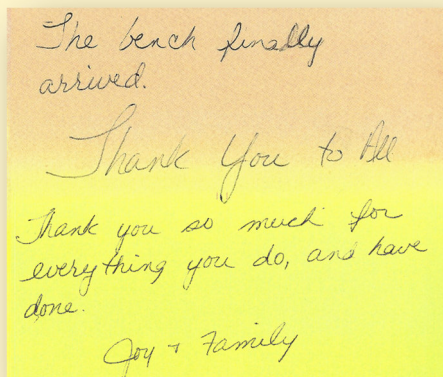 The bench finally
arrived.
Thank You to All
Thank you so much for
everything you do, and have
done.
Joy + Family